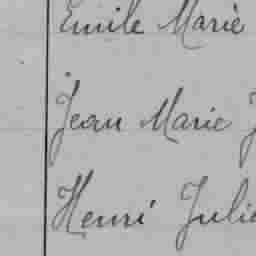 Emile Marie
Jean Marie J
Henri Julie